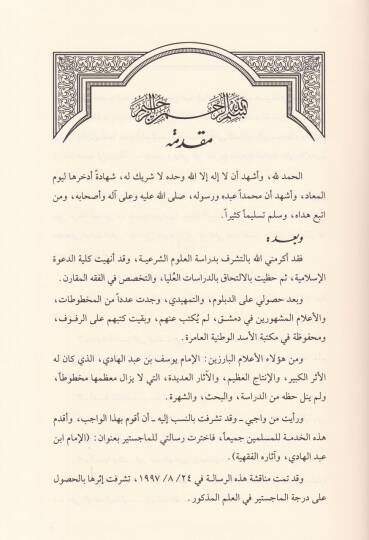 بسم الله الرحمن الرحيم
مقدمة
الحمد لله، وأشهد أن لا إله إلا الله وحده لا شريك له، شهادةً أدخرها ليوم
المعاد، وأشهد أن محمداً عبده ورسوله، صلى الله عليه وعلى آله وأصحابه، ومن
اتبع هداه، وسلم تسليماً كثيراً.
وبعد:
فقد أكرمني الله بالتشرف بدراسة العلوم الشرعية، وقد أنهيت كلية الدعوة
الإسلامية، ثم حظيت بالالتحاق بالدراسات العُليا، والتخصص في الفقه المقارن.
وبعد حصولي على الدبلوم، والتمهيدي، وجدت عدداً من المخطوطات،
والأعلام المشهورين في دمشق، لم يُكتب عنهم، وبقيت كتبهم على الرفوف،
ومحفوظة في مكتبة الأسد الوطنية العامرة.
ومن هؤلاء الأعلام البارزين: الإمام يوسف بن عبد الهادي، الذي كان له
الأثر الكبير، والإنتاج العظيم، والآثار العديدة، التي لا يزال معظمها مخطوطاً،
ولم ينل حظه من الدراسة، والبحث، والشهرة.
ورأيت من واجبي ـ وقد تشرفت بالنسب إليه ـ أن أقوم بهذا الواجب، وأقدم
هذه الخدمة للمسلمين جميعاً، فاخترت رسالتي للماجستير بعنوان: (الإمام ابن
عبد الهادي، وآثاره الفقهية).
وقد تمت مناقشة هذه الرسالة في ٢٤/ ٨/ ١٩٩٧، تشرفت إثرها بالحصول
على درجة الماجستير في العلم المذكور.